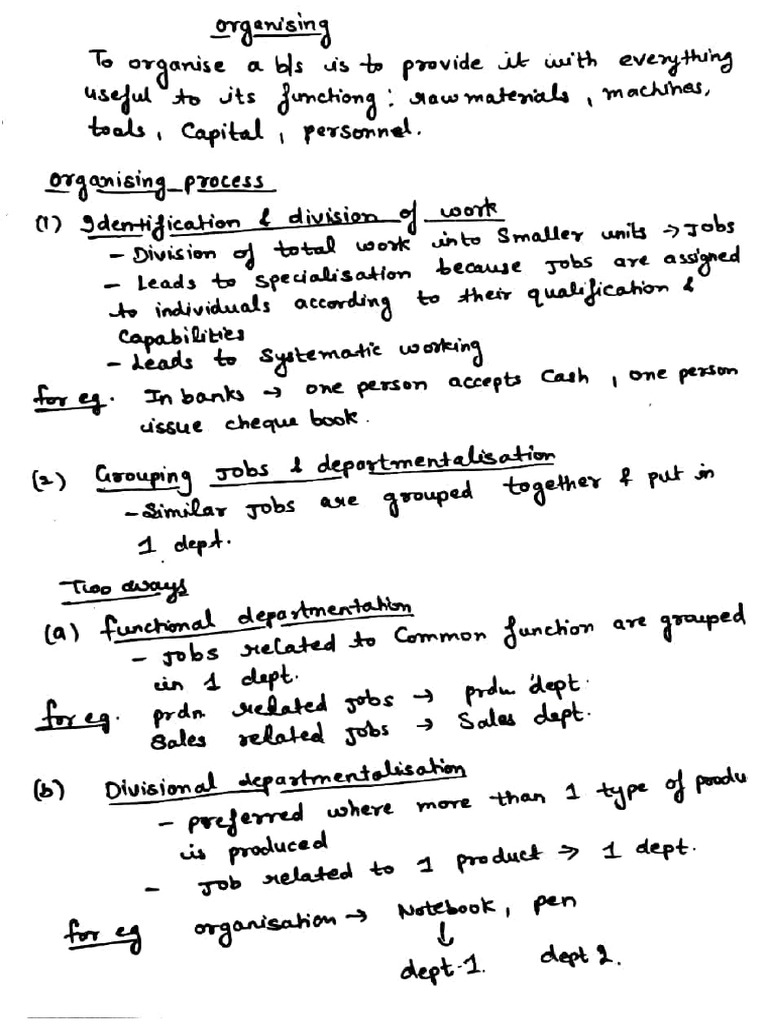 organising
To organise a b/s is to provide it with everything
useful to its functiong: raw materials, machines,
tools, Capital, personnel.
organising process
(1) Identification & division of work
- Division of total work into Smaller units → Jobs
- Leads to specialisation because jobs are assigned
to individuals according to their qualification &
Capabilities
- Leads to Systematic working
for eg. In banks → one person accepts Cash, one person
issue cheque book.
(2) Grouping jobs & departmentalisation
- Similar jobs are grouped together & put in
1 dept.
Two ways
(a) functional departmentation
- jobs related to Common function are grouped
in 1 dept.
for eg. prdn. related jobs → prdn. dept.
Sales related jobs → Sales dept.
(b) Divisional departmentalisation
- preferred where more than 1 type of produ
is produced
- Job related to 1 product ⇒ 1 dept.
for eg organisation → Notebook, pen
↓
dept-1. dept 2.